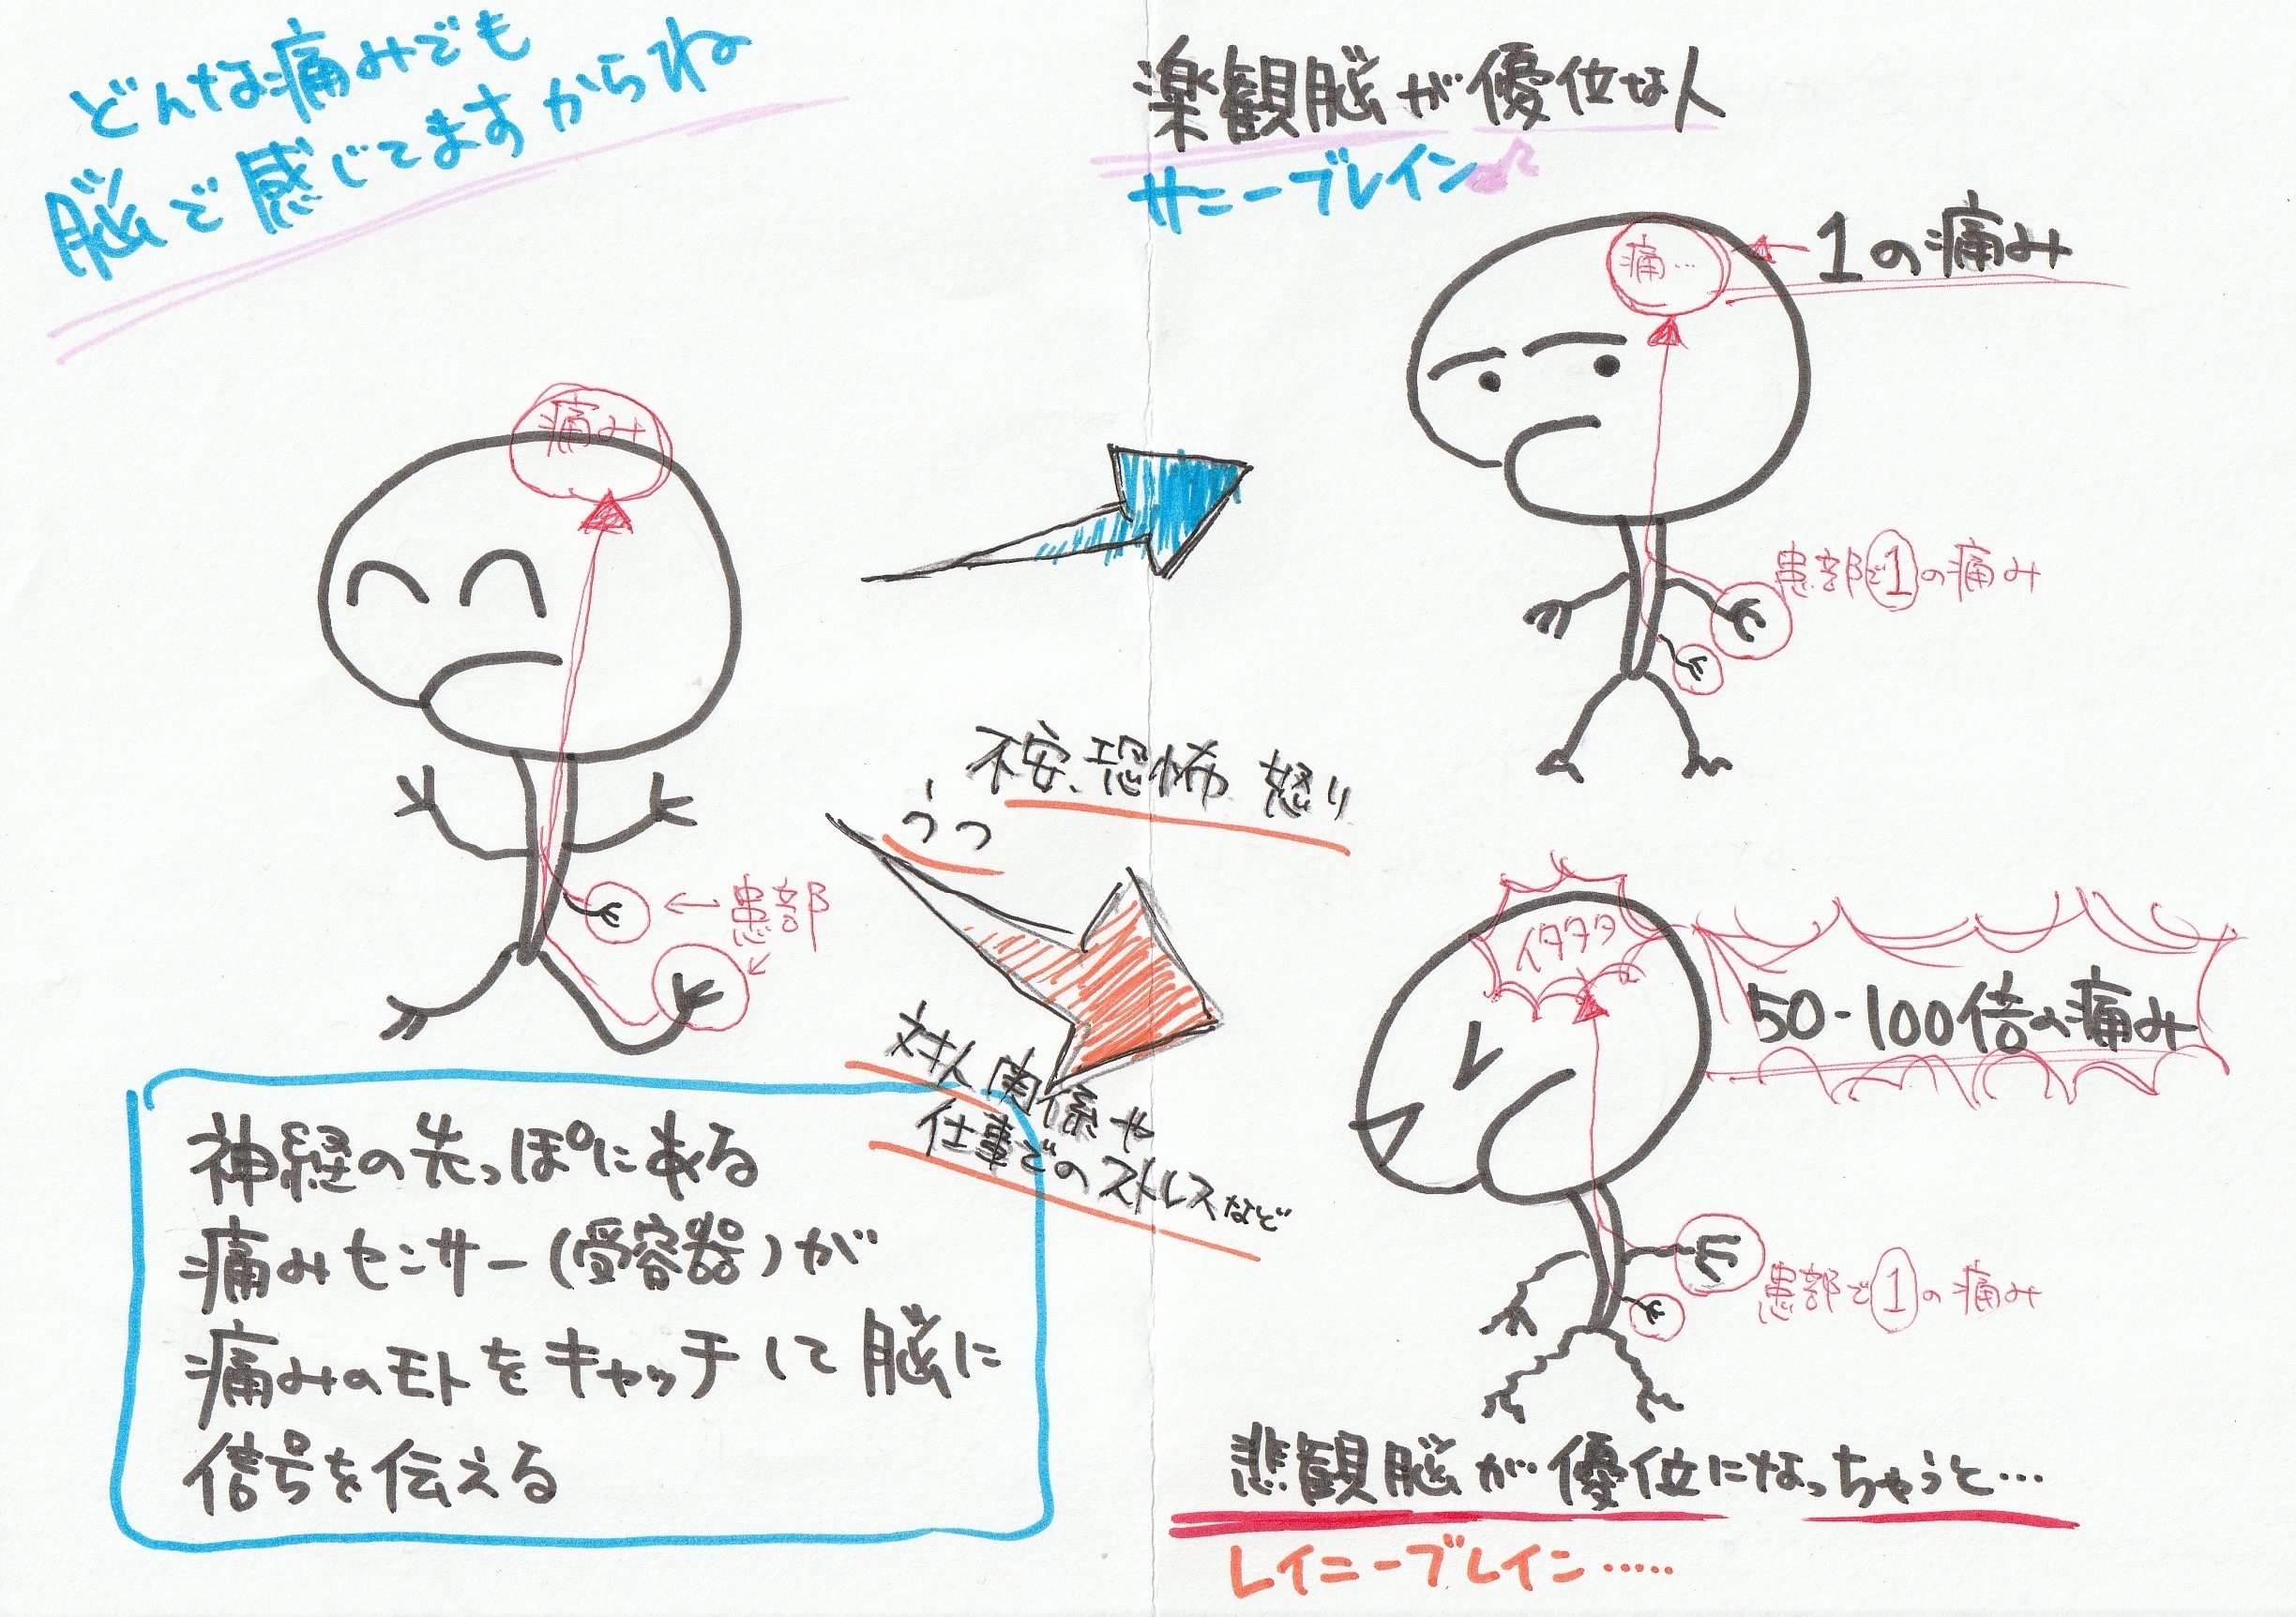 どんな痛みでも
脳で感じてますからね
痛み
←患部
神経の先っぽにある
痛みセンサー(受容器)が
痛みのモトをキャッチして脳に
信号を伝える
楽観脳が優位な人
サニーブレイン♪
痛…
1の痛み
患部で1の痛み
不安、恐怖 怒り
うつ
対人関係や
仕事でのストレスなど
イタタタ
50-100倍の痛み
患部で1の痛み
悲観脳が優位になっちゃうと…
レイニーブレイン……